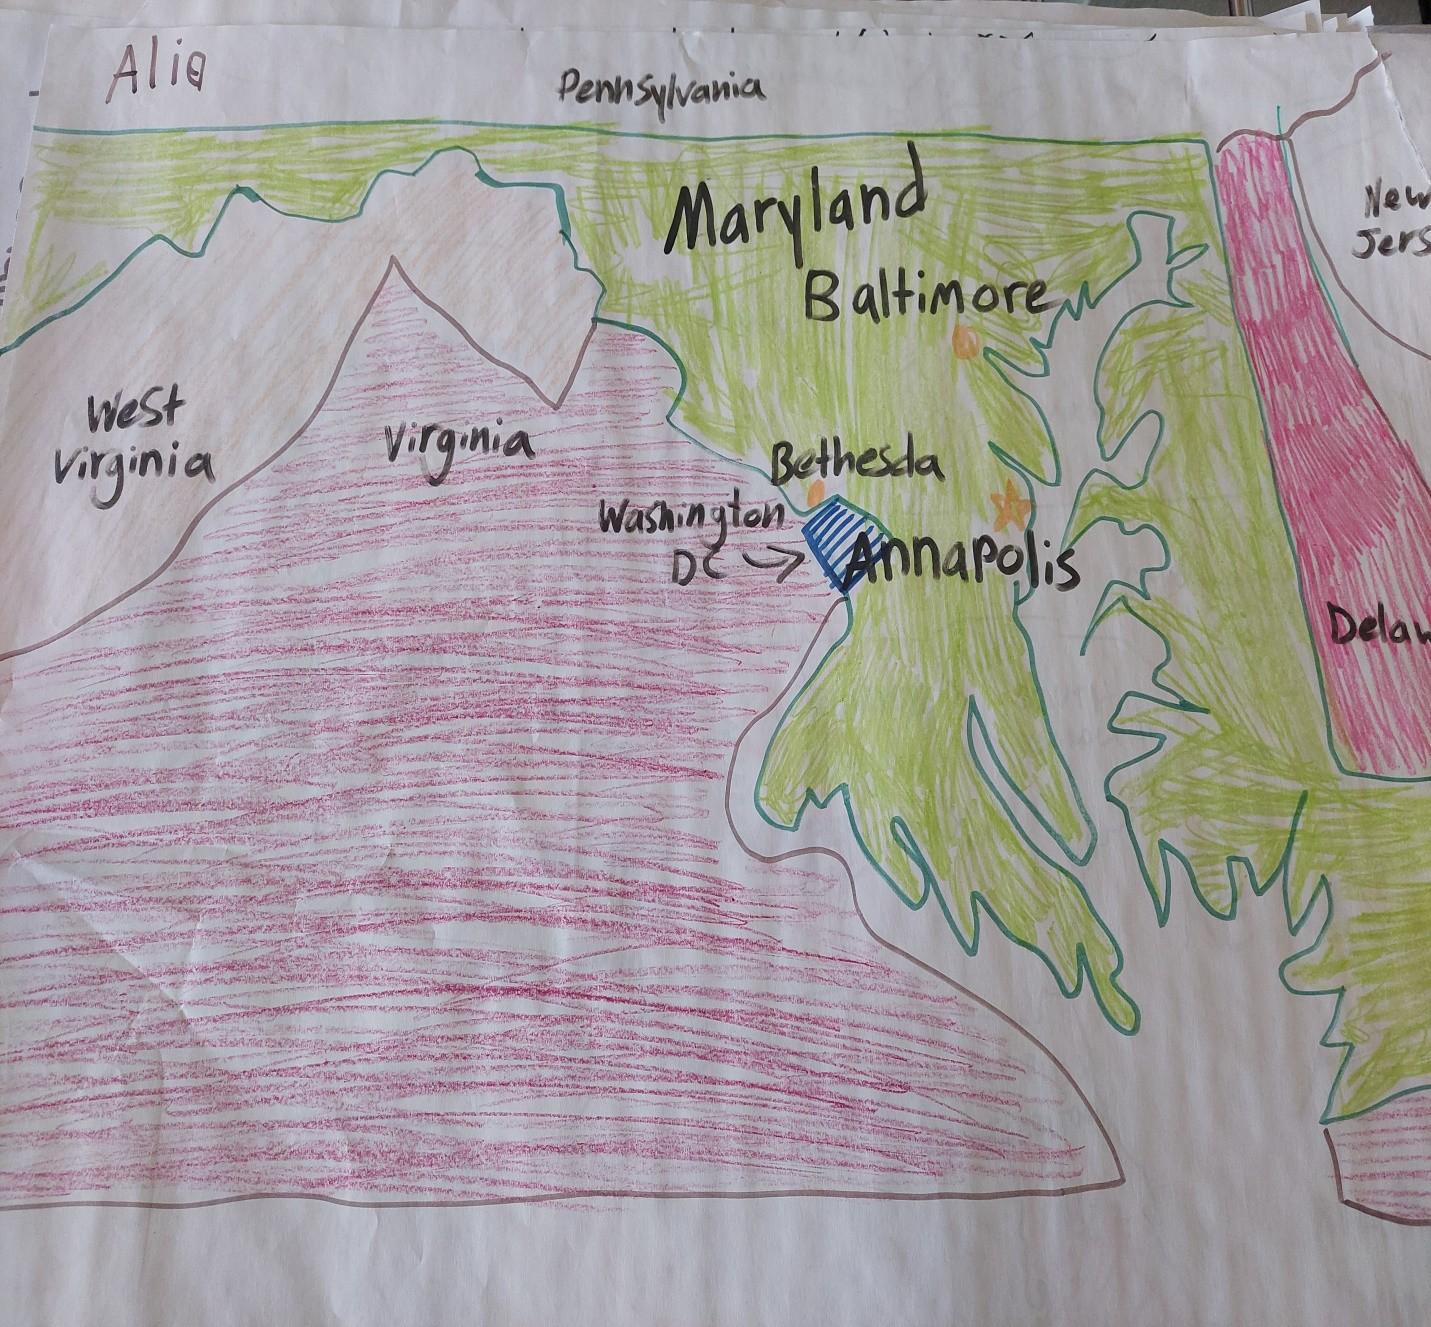 Alia
Pennsylvania
Maryland
New
Jers
Baltimore
West
Virginia
Virginia
Bethesda
Washington
DC
Annapolis
Delaw